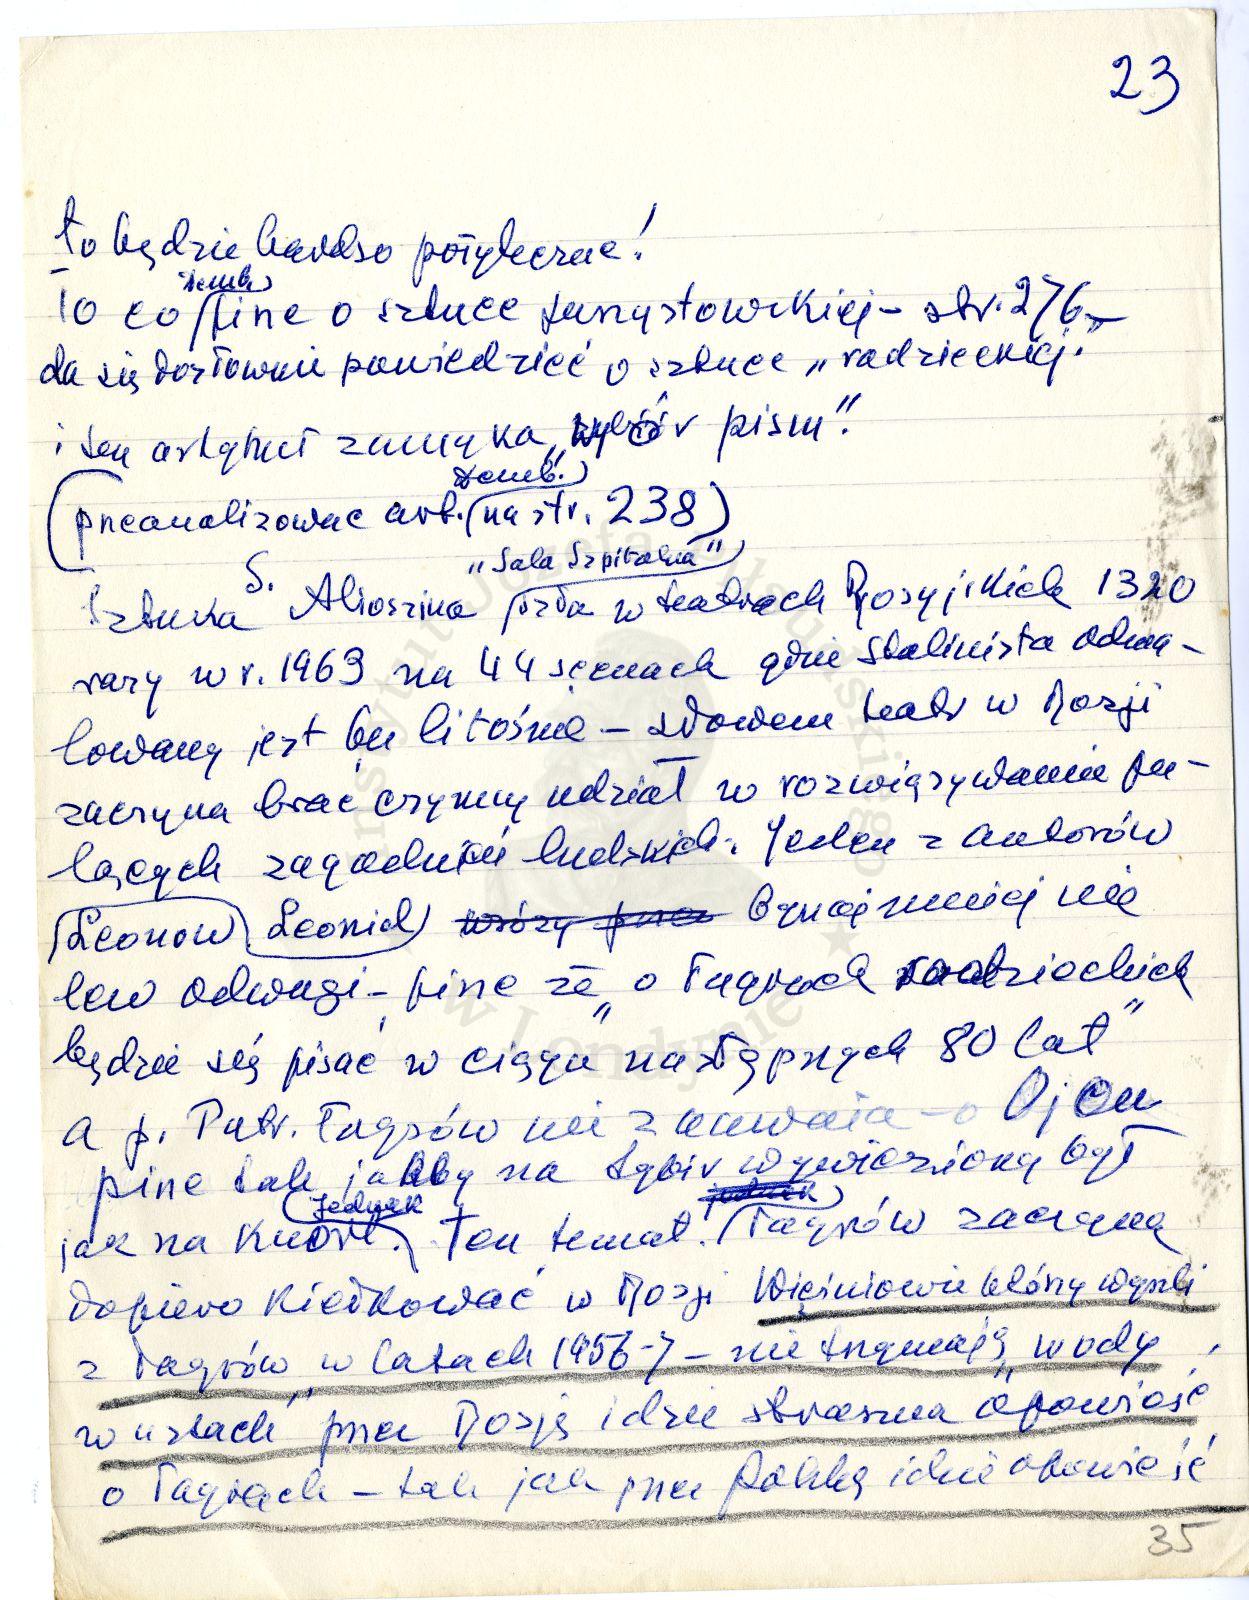 23
to będzie bardzo pożyteczne!
To co Stemb. pisze o sztuce faszystowskiej – str. 276 –
da się dosłownie powiedzieć o sztuce „radzieckiej."
i ten artykuł zamyka „wybór pism".
(przeanalizować art. Stemb. na str. 238)
„Sala Szpitalna"
Sztuka S. Aloszina szła w teatrach Rosyjskich 1320
razy w r. 1963 na 44 scenach gdzie stalinista odma-
lowany jest bezlitośnie – słowem teatr w Rosji
zaczyna brać czynny udział w rozwiązywaniu pa-
lących zagadnień ludzkich. Jeden z autorów
Leonow Leonid bynajmniej nie
lew odwagi – pisze że „o łagrach radzieckich
będzie się pisać w ciągu następnych 80 lat"
a p. Putr. łagrów nie zauważa – o Ojcu
pisze tak jakby na Sybir wywieziony był
jak na Kuort. Jednak Ten temat łagrów zaczyna
dopiero kiełkować w Rosji Więźniowie którzy wyszli
z łagrów w latach 1956-7 – nie trzymają „wody
w ustach" przez Rosję idzie straszna opowieść
o łagrach – tak jak przez Polskę idzie opowieść
35
Instytut Józefa Piłsudskiego
w Londynie